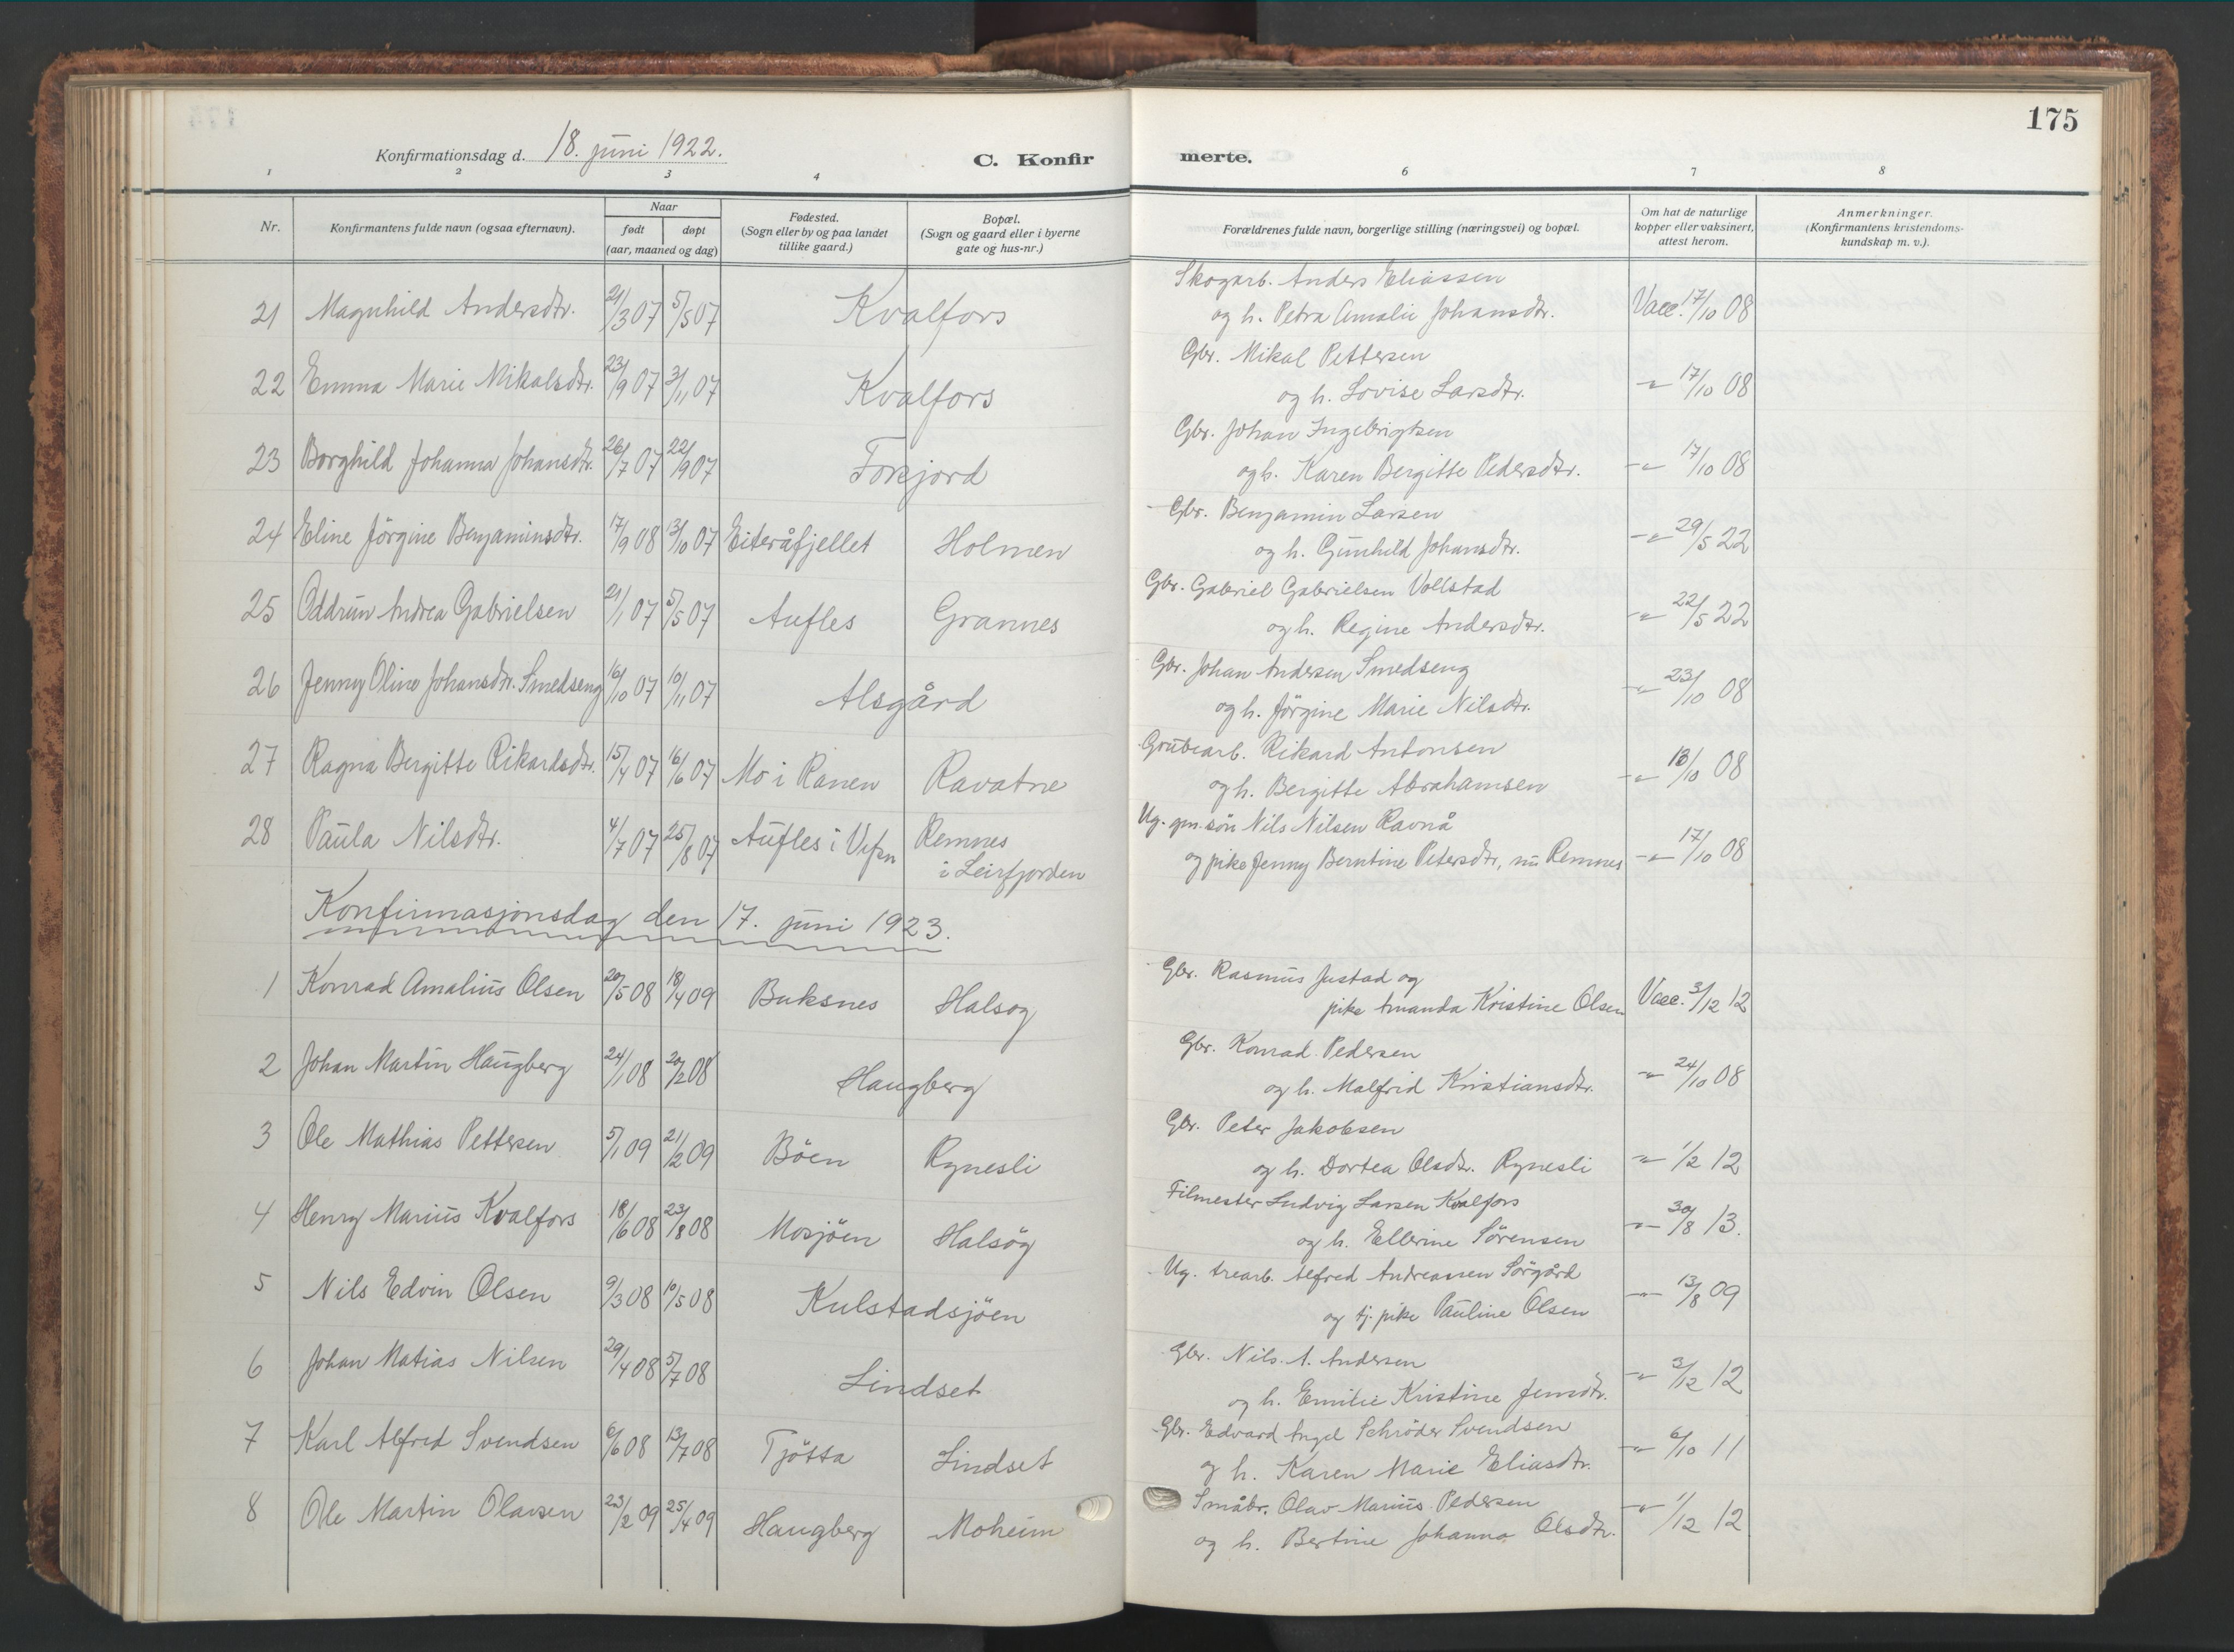 175
Konfirmationsdag d. 18. juni 1922.
C. Konfirmerte.
1 2 3 4 6 7 8
Nr.
Konfirmantens fulde navn (ogsaa efternavn).
Naar
født døpt
(aar, maaned og dag)
Fødested.
(Sogn eller by og paa landet
tillike gaard.)
Bopæl.
(Sogn og gaard eller i byerne
gate og hus-nr.)
Forældrenes fulde navn, borgerlige stilling (næringsvei) og bopæl.
Om hat de naturlige
kopper eller vaksinert,
attest herom.
Anmerkninger.
(Konfirmantens kristendoms-
kundskap m. v.).
21 Magnhild Andersdtr. 21/3 07 5/5 07 Kvalfors Skogarb. Anders Eliassen
og h. Petra Amalie Johansdtr. Vacc. 17/10 08
22 Emma Marie Mikalsdtr. 23/9 07 3/11 07 Kvalfors Gbr. Mikal Pettersen
og h. Lovise Larsdtr. -"- 17/10 08
23 Borghild Johanna Johansdtr. 26/7 07 22/9 07 Forsjord Gbr. Johan Ingebrigtsen
og h. Karen Bergitte Pedersdtr. -"- 17/10 08
24 Eline Jörgine Benjaminsdtr. 17/9 08 13/10 07 Eiteråfjellet Holmen Gbr. Benjamin Larsen
og h. Gunhild Johansdtr. -"- 29/5 22
25 Oddrun Andrea Gabrielsen 21/1 07 5/5 07 Aufles Grannes Gbr. Gabriel Gabrielsen Vollstad
og h. Regine Andersdtr. -"- 22/5 22
26 Jenny Oline Johansdtr. Smedseng 16/10 07 10/11 07 Alsgård Gbr. Johan Andersen Smedseng
og h. Jörgine Marie Nilsdtr. -"- 23/10 08
27 Ragna Bergitte Rikardsdtr. 15/4 07 16/6 07 Mo i Ranen Ravatne Grubearb. Rikard Antonsen
og h. Bergitte Abrahamsen -"- 18/10 08
28 Paula Nilsdtr. 4/7 07 25/8 07 Aufles i Vefsn Remnes
i Leirfjorden Ug. gm. søn Nils Nilsen Ravnå
og pike Jenny Berntine Petersdtr, nu Remnes -"- 17/10 08
Konfirmasjonsdag den 17. juni 1923.
1 Konrad Amalius Olsen 20/5 08 18/4 09 Buksnes Halsøg Gbr. Rasmus Justad og
pike Amanda Kristine Olsen Vacc. 3/12 12
2 Johan Martin Haugberg 24/1 08 20/2 08 Haugberg Gbr. Konrad Pedersen
og h. Malfrid Kristiansdtr. -"- 24/10 08
3 Ole Mathias Pettersen 5/1 09 21/2 09 Böen Rynesli Gbr. Peter Jakobsen
og h. Dortea Olsdtr. Rynesli -"- 1/2 12
4 Henry Marius Kvalfors 18/6 08 23/8 08 Mosjöen Halsög Filmester Ludvig Larsen Kvalfors
og h. Ellerine Sörensen -"- 30/8 13.
5 Nils Edvin Olsen 9/3 08 10/5 08 Kulstadsjöen Ug. trearb. Alfred Andreassen Sörgård
og tj. pike Pauline Olsen -"- 13/8 09
6 Johan Matias Nilsen 29/4 08 5/7 08 Lindset Gbr. Nils A. Andersen
og h. Emilie Kristine Jensdtr. -"- 3/12 12
7 Karl Alfred Svendsen 6/6 08 13/7 08 Tjötta Lindset Gbr. Edvard Angel Schröder Svendsen
og h. Karen Marie Eliasdtr. -"- 6/10 11
8 Ole Martin Olavsen 23/2 09 25/4 09 Haugberg Moheim Småbr. Olav Marius Pedersen
og h. Bertine Johanna Olsdtr. -"- 1/12 12